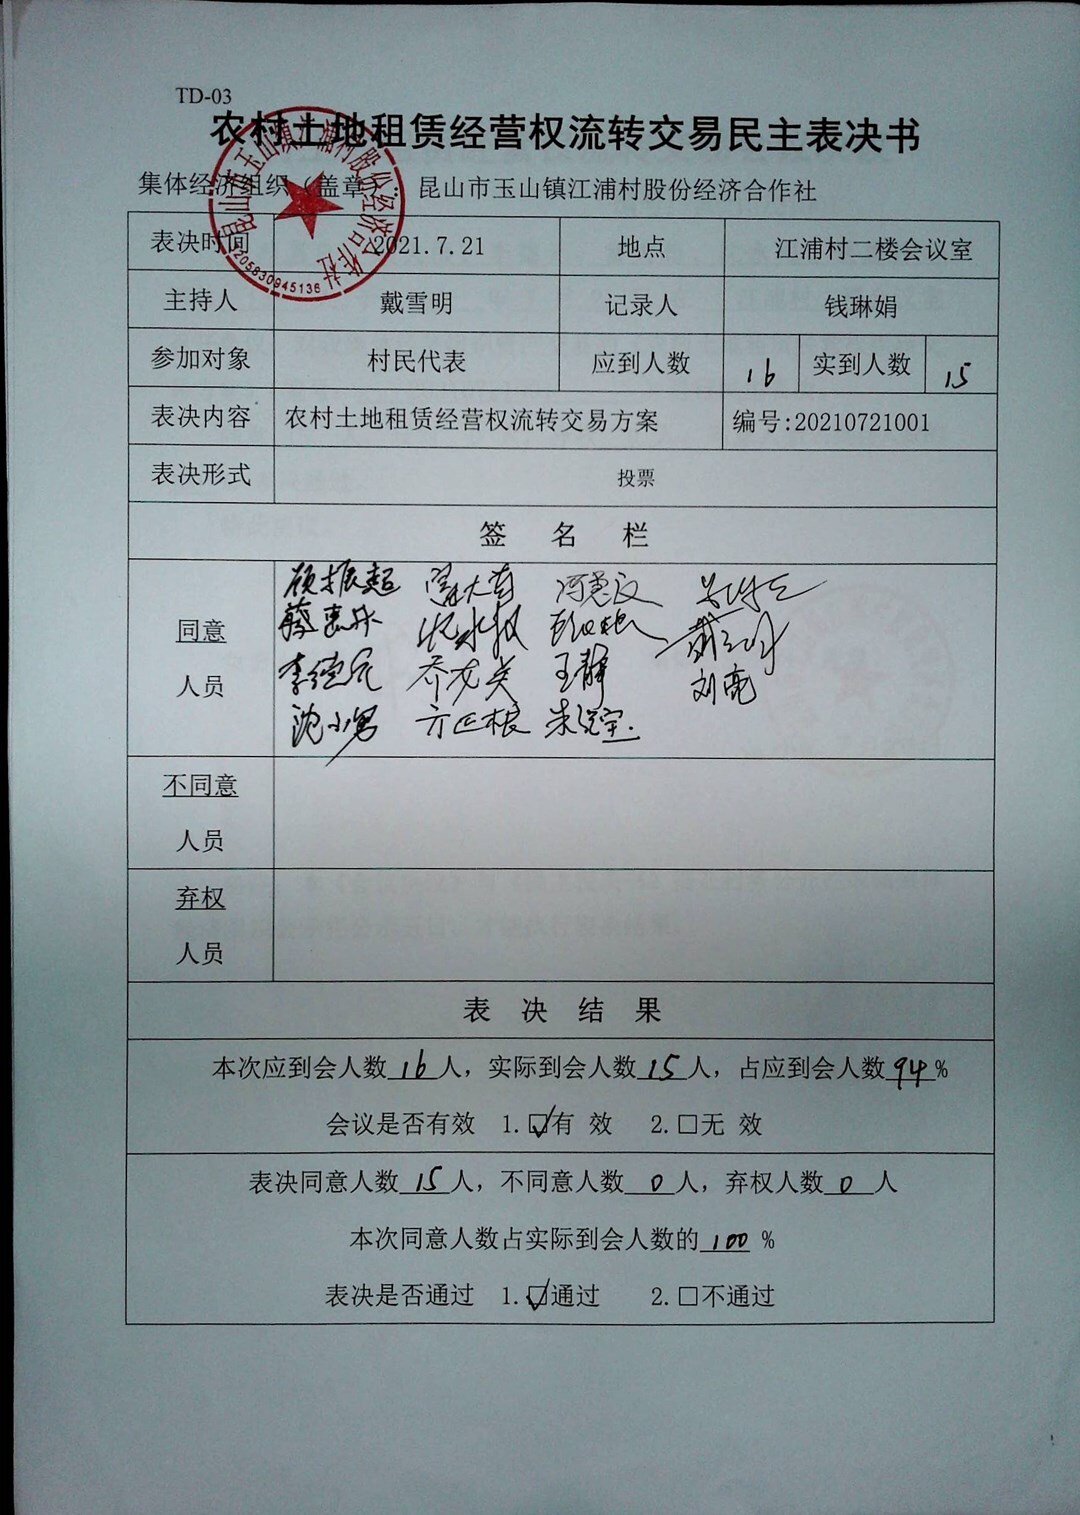 TD-03
农村土地租赁经营权流转交易民主表决书
集体经济组织（盖章）： 昆山市玉山镇江浦村股份经济合作社
昆山市玉山镇江浦村股份经济合作社
3205830945136
表决时间 2021.7.21 地点 江浦村二楼会议室
主持人 戴雪明 记录人 钱琳娟
参加对象 村民代表 应到人数 16 实到人数 15
表决内容 农村土地租赁经营权流转交易方案 编号:20210721001
表决形式 投票
签 名 栏
同意
人员
顾振超
蔡惠珍
李德元 乔龙英 王静 刘亮
沈小男 方正根
不同意
人员
弃权
人员
表 决 结 果
本次应到会人数16人，实际到会人数15人，占应到会人数94%
会议是否有效 1.☑有 效 2.□无 效
表决同意人数15人，不同意人数0人，弃权人数0人
本次同意人数占实际到会人数的100 %
表决是否通过 1.☑通过 2.□不通过